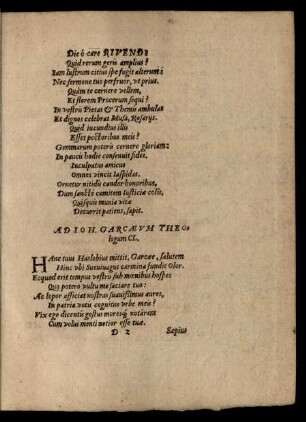 Dic ô care RIVENDI
Quid rerum geris amplius?
Iam lustrum citius spe fugit alterum:
Nec sermone tuo perfruor, vt prius.
Quàm te cernere vellem,
Et florem Procerum sequi?
In vestris Pietas & Themis ambulat
Et dignos celebrat Musa, Rosarijs.
Quid iucundius illis
Esset pectoribus meis?
Gemmarum poteris cernere gloriam:
In paucis hodie consenuit fides,
Inculpatus amicus
Omnes vincit Iaspidas.
Ornetur nitidis candor honoribus,
Dum sancte comitem Iusticiæ colit,
Quisquis munia vitæ
Decurrit patiens, sapit.
AD IOH. GARCÆVM THEO-
logum CL.
HAnc tuus Haslobius mittit, Garcæe, salutem
Hinc vbi Sueuiuagus carmina fundit Olor.
Ecquod erit tempus vestris sub mœnibus hospes
Quo potero vultu me saciare tuo:
Ac lepor afficiat nostras suauißimus aures,
In patria votu cognitus vrbe meis?
Vix ego dicentis gestus moresq; notaram
Cum volui menti notior esse tuæ.
D 2 Sæpius